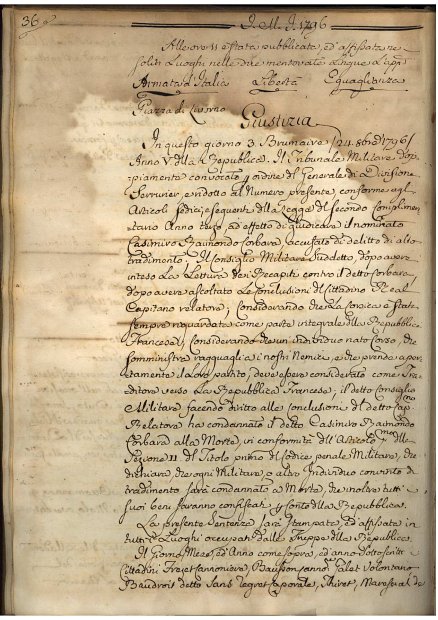 36
D. M. D. 1796
Alle ore 11 è stata pubblicata, ed affissata ne
soliti Luoghi nelle due mentovate Lingue L'app
Armata d'Italia Libertà Eguaglianza
Piazza di Livorno
Giustizia
In questo giorno 3 Brumaire /24. 8bre 1796/
Anno V. della Repubblica. Il Tribunale Militare dop
piamente convocato p ordine del Generale di Divisione
Serrurier, e ridotto al Numero presente, conforme agl
Articoli sedici, e seguenti della Legge del secondo Complimen
tario Anno terzo, ad effetto di giudicare il nominato
Casimiro Raimondo Corbara accusato di delitto di alto
tradimento; Il Consiglio Militare suddetto, dopo avere
inteso La Lettura dei Recapiti contro il detto Corbara,
dopo avere ascoltato Le Conclusioni del Cittadino Real
Capitano relatore; Considerando che La Corsica è stata
sempre riguardata come parte integrale della Repubblica
Francese; Considerando che un individuo nato Corso, che
somministra ragguagli a i nostri Nemici, e che prende aper
tamente il Loro partito, deve essere considerato come Tra
ditore verso La Repubblica Francese; il detto Consiglio
Militare facendo diritto alle Conclusioni del detto Cap
Relatora ha condannato il detto Casimiro Raimondo
Corbara alla Morte, in conformità dell'Articolo della
Sezione 11 del Titolo primo del Codice penale Militare, che
dichiara, che ogni Militare, o altro Individuo convinto di
tradimento sarà condannato a Morte, che inoltre tutti i
suoi beni saranno confiscati p conto della Repubblica.
La presente Sentenza sarà stampata, ed affissata in
tutti i Luoghi occupati dalle Truppe della Repubblica.
Il Giorno, Mese, ed Anno come sopra, ed anno sottoscritti i
Cittadini Frejet Cannoniere, Bausson, Palet Volontario
Baudroit detto Sans regret Caporale, Thivet, Marescial de